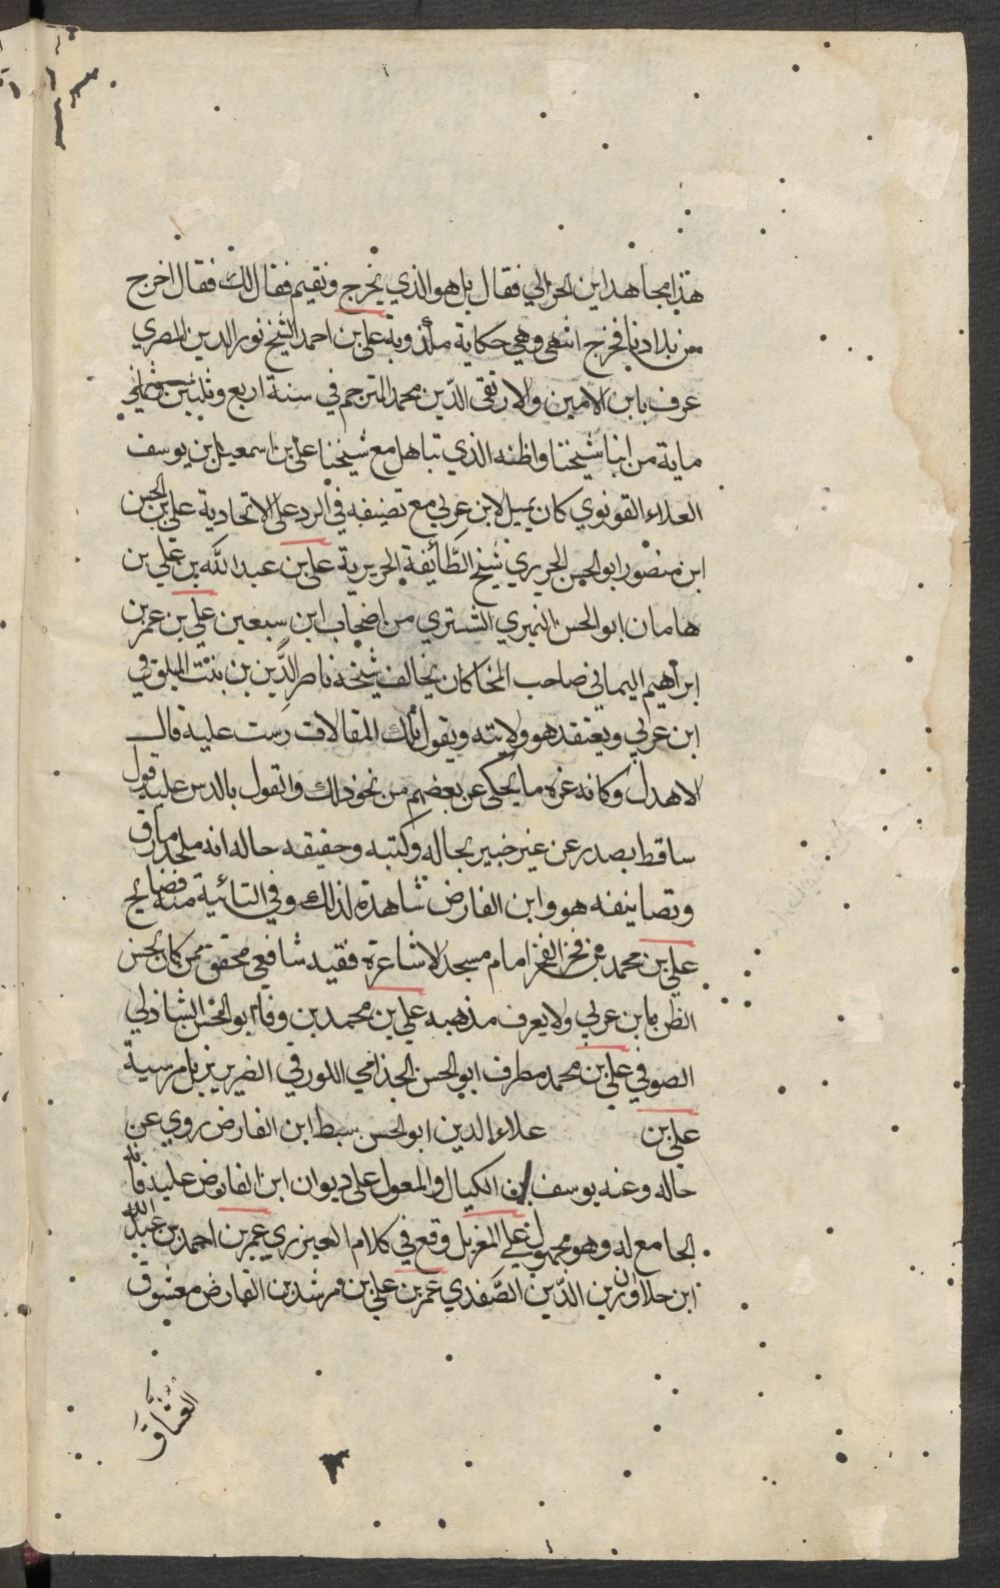 هذا مجاهد ابن الحرالي فقال بل هو الذي يخرج ونقيم فقال لك فقال اخرج
من بلادنا فخرج انتهى وهي حكاية مكذوبة علي بن احمد الشيخ نور الدين المصري
عرف بابن الامين والارتقى الدين محمد المترجم في سنة اربع وثلثين
ماية من ابنا شيخنا واظنه الذي تباهل مع شيخنا علي بن اسمعيل بن يوسف
العلاء القونوي كان يميل لابن عربي مع تصنيفه في الرد على الاتحادية علي بن الحسن
ابن منصور ابو الحسن الحريري شيخ الطائفة الحريرية علي بن عبد الله بن علي بن
هامان ابو الحسن النميري الششتري من اصحاب ابن سبعين علي بن عمر بن
ابراهيم اليماني صاحب المخا كان يخالف شيخه ناصر الدين بن بنت الميلق في
ابن عربي ويعتقد هو ولايته ويقول تلك المقالات دست عليه قال
الاهدل وكانه غره ما يحكى عن بعضهم من نحو ذلك والقول بالدس عليه قول
ساقط يصدر عن غير خبير بحاله وكتبه وحقيقه حاله انه ملحد مارق
وتصانيفه هو وابن الفارض شاهدة لذلك وفي التائية منه فضائح
علي بن محمد بن فخر الفخر امام مسجد الاشاعرة فقيه شافعي محقق ممن كان يحسن
الظن بابن عربي ولا يعرف مذهبه علي بن محمد بن وفا ابو الحسن الشاذلي
الصوفي علي بن محمد مطرف ابو الحسن الجذامي اللورقي الضرير نزيل مرسية
علي بن علاء الدين ابو الحسن سبط ابن الفارض روي عن
خاله وعنه يوسف بن الكيال والمعول على ديوان ابن الفارض عليه فانه
الجامع له وهو مجهول علي المغربل وقع في كلام العيزري عمر بن احمد بن عبد الله
ابن حلاوان زين الدين الصفدي عمر بن علي بن مرشد بن الفارض معشوق
العشاق